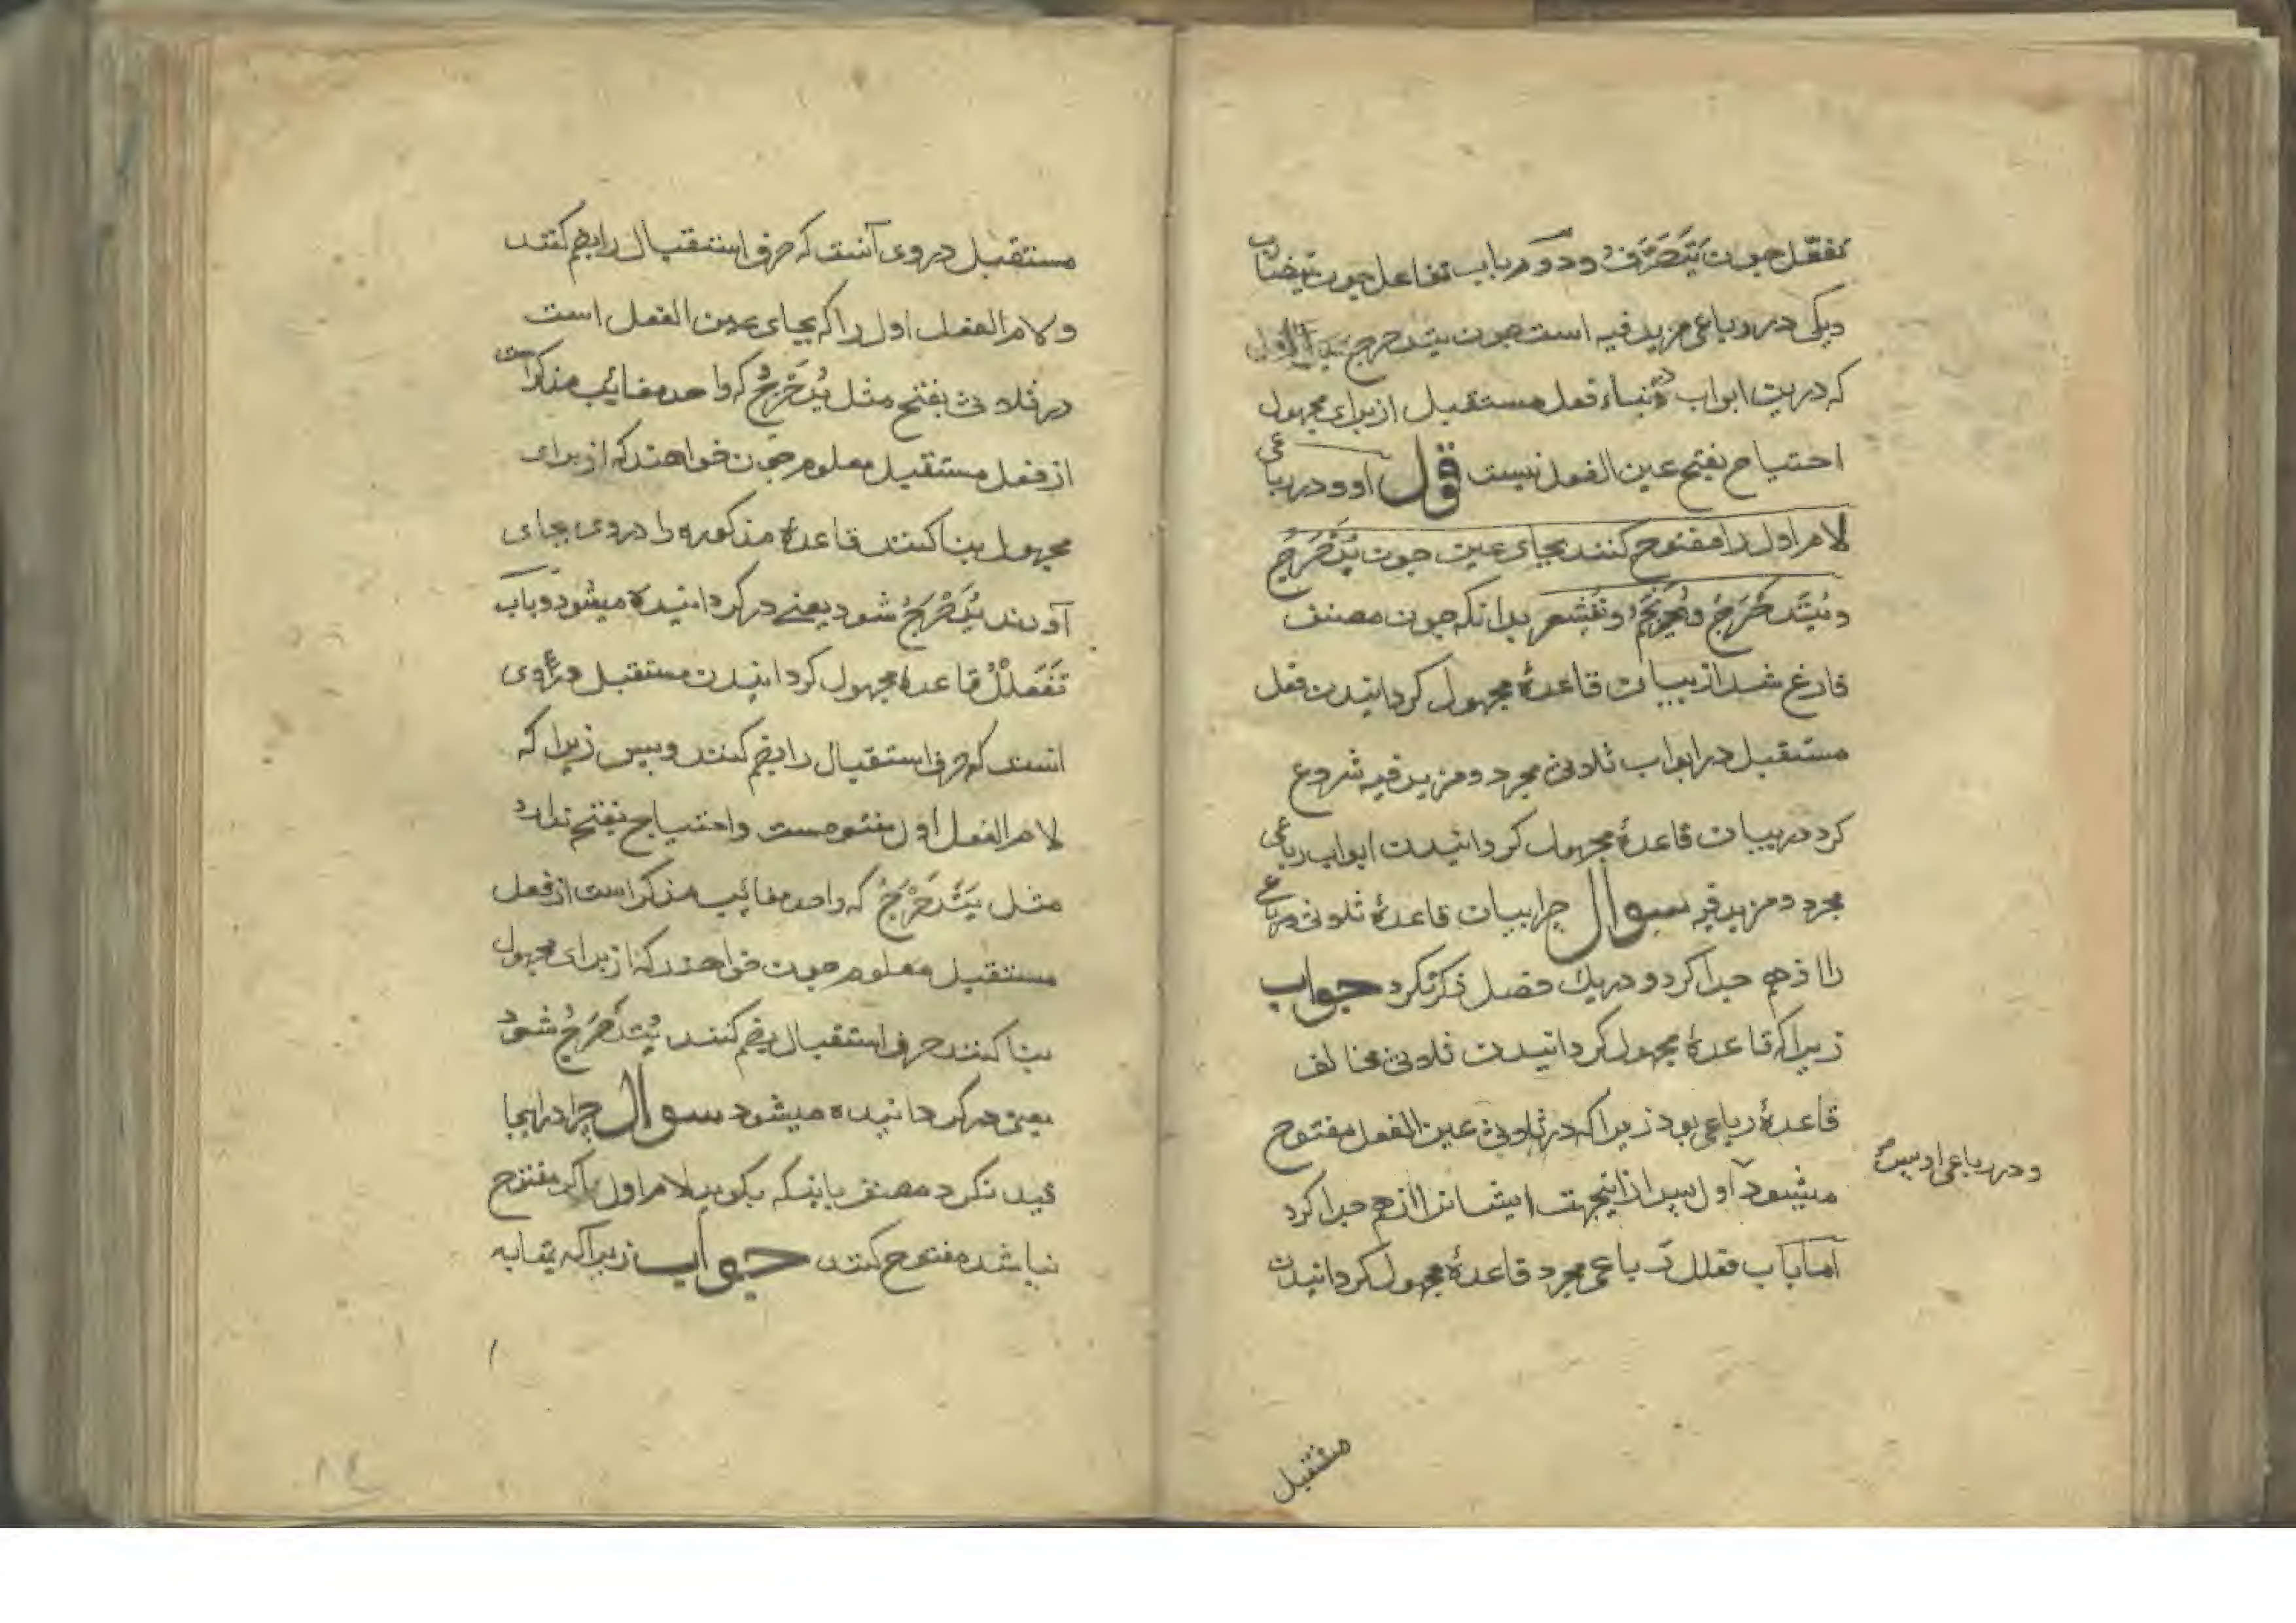 تفعّل چون یَتَصَرَّفُ ودوم باب تفاعل چون یتضارب
ویکی در رباعی مزید فیه است چون یتدحرج
که درین ابواب بناء فعل مستقبل از برای مجهول
احتیاج بفتح عین الفعل نیست قول او ودر رباعی
لام اول را مفتوح کنند بجای عین چون یُدَحْرَجُ
ویُتَدَحْرَجُ ویُحْرَنْجَمُ ویُقْشَعَر بدانکه چون مصنف
فارغ شد از بیان قاعدهٔ مجهول کردانیدن فعل
مستقبل در ابواب ثلاثی مجرد ومزید فیه شروع
کرد در بیان قاعدهٔ مجهول کردانیدن ابواب رباعی
مجرد ومزید فیه سوال چرا بیان قاعدهٔ ثلاثی ورباعی
را از هم جدا کرد ودر یک فصل ذکر نکرد جواب
زیرا که قاعدهٔ مجهول کردانیدن ثلاثی مخالف
قاعدهٔ رباعی بود زیرا که در ثلاثی عین الفعل مفتوح
ودر رباعی
میشود اول پس از اینجهت ایشانرا از هم جدا کرد
اما باب فعلل رباعی مجرد قاعدهٔ مجهول کردانیدن
مستقبل
مستقبل در وی آنست که حرف استقبال را بضم کنند
ولام الفعل اول را که بجای عین الفعل است
در ثلاثی بفتح مثل یُدَحْرِجُ که واحد مغائب مذکر است
از فعل مستقبل معلوم چون خواهند که از برای
مجهول بنا کنند قاعدهٔ مذکوره را در وی بجای
آورند یُدَحْرَجُ شود یعنی در کردانیده میشود وباب
تَفَعْلُلْ قاعدهٔ مجهول کردانیدن مستقبل در وی
انست که حرف استقبال را بضم کنند وبس زیرا که
لام الفعل اول مفتوحست واحتیاج بفتح ندارد
مثل یَتَدَحْرَجُ که واحد مغائب مذکر است از فعل
مستقبل معلوم چون خواهند که از برای مجهول
بنا کنند حرف استقبال بضم کنند یُتَدَحْرَجُ شود
یعنی در کردانیده میشود سوال چرا در اینجا
قید نکرد مصنف باینکه بکوید لام اول را اکر مفتوح
نباشد مفتوح کنند جواب زیرا که بمقابه